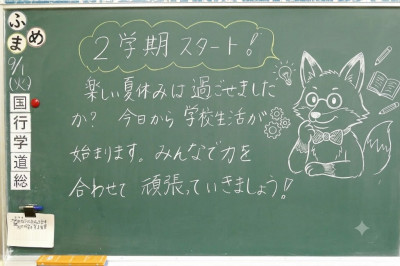 ふ
ま
め
9/1
(火)
国
行
学
道
総
2学期スタート!
楽しい夏休みは過ごせました
か? 今日から学校生活が
始まります。みんなで力を
合わせて頑張っていきましょう!